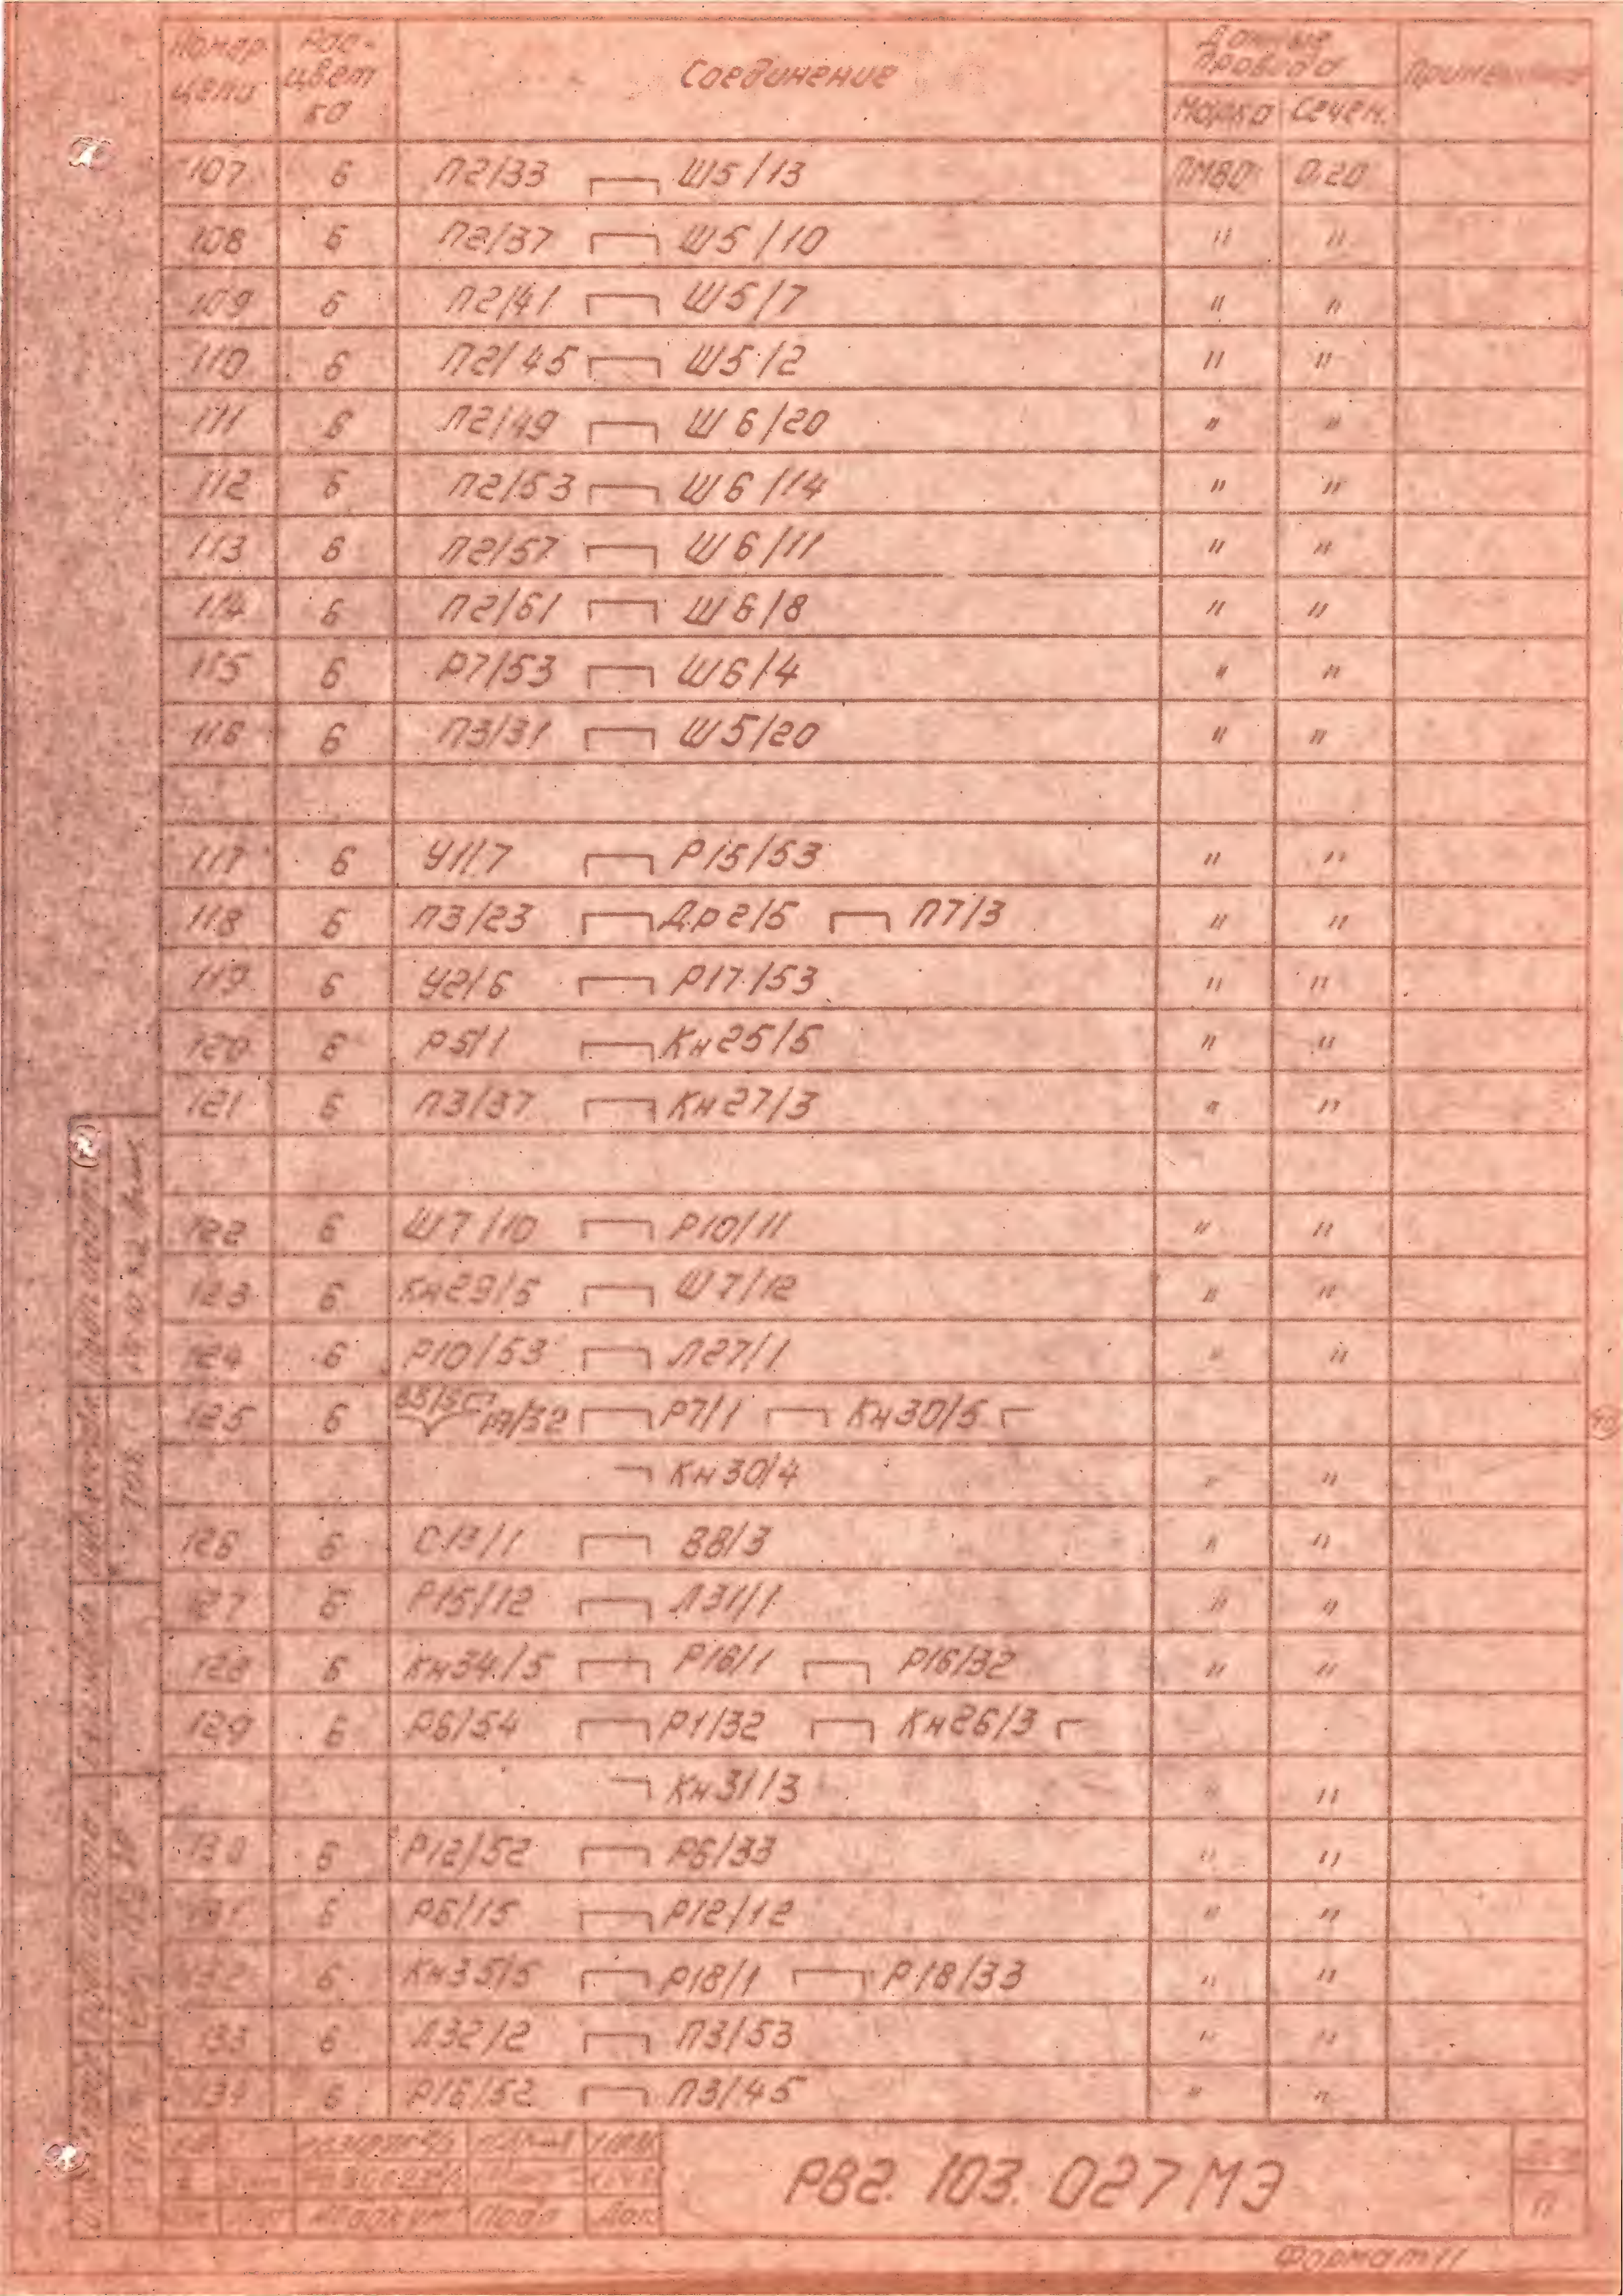 Номер цепи Рас-цвет ка Соединение Данные провода Примечание
Марка Сечен.
107 б П2/33 ┌─┐ Ш5/13 ПМВО 0.20
108 б П2/37 ┌─┐ Ш5/10 " "
109 б П2/41 ┌─┐ Ш5/7 " "
110 б П2/45 ┌─┐ Ш5/2 " "
111 б П2/49 ┌─┐ Ш6/20 " "
112 б П2/53 ┌─┐ Ш6/14 " "
113 б П2/57 ┌─┐ Ш6/11 " "
114 б П2/61 ┌─┐ Ш6/8 " "
115 б Р7/53 ┌─┐ Ш6/4 " "
116 б П3/31 ┌─┐ Ш5/20 " "
117 б У1/7 ┌─┐ Р15/53 " "
118 б П3/23 ┌─┐ Др2/5 ┌─┐ П7/3 " "
119 б У2/6 ┌─┐ Р17/53 " "
120 б Р5/1 ┌─┐ Кн25/5 " "
121 б П3/37 ┌─┐ Кн27/3 " "
122 б Ш7/10 ┌─┐ Р10/11 " "
123 б Кн29/5 ┌─┐ Ш7/12 " "
124 б Р10/53 ┌─┐ Л27/1 " "
125 б ┌─┐ Р7/1 ┌─┐ Кн30/5 ┌
┐ Кн30/4 " "
126 б С13/1 ┌─┐ В8/3 " "
127 б Р15/12 ┌─┐ Л31/1 " "
128 б Кн34/5 ┌─┐ Р16/1 ┌─┐ Р16/32 " "
129 б Р6/54 ┌─┐ Р1/32 ┌─┐ Кн26/3 ┌
┐ Кн31/3 " "
130 б Р12/52 ┌─┐ Р6/33 " "
131 б Р6/15 ┌─┐ Р12/12 " "
132 б Кн35/5 ┌─┐ Р18/1 ┌─┐ Р18/33 " "
133 б Л32/2 ┌─┐ П3/53 " "
134 б Р16/52 ┌─┐ П3/45 " "
РВ2.103.027МЭ
Формат 11